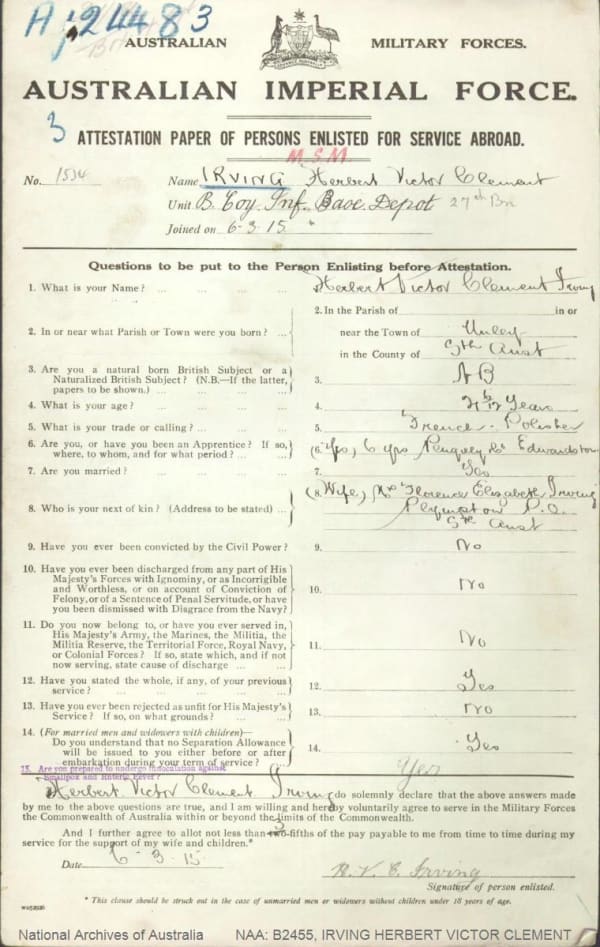 A 24483
AUSTRALIAN MILITARY FORCES.
AUSTRALIAN IMPERIAL FORCE.
3 ATTESTATION PAPER OF PERSONS ENLISTED FOR SERVICE ABROAD.
M.S.M.
No. 1534 Name IRVING Herbert Victor Clement
Unit B. Coy Inf. Base Depot 27th Bn
Joined on 6-3-15
Questions to be put to the Person Enlisting before Attestation.
1. What is your Name? ... Herbert Victor Clement Irving
2. In or near what Parish or Town were you born? ... 2. In the Parish of in or
near the Town of Unley
in the County of Sth Aust
3. Are you a natural born British Subject or a
Naturalized British Subject? (N.B.—If the latter,
papers to be shown.) ... 3. NB
4. What is your age? ... 4. Years
5. What is your trade or calling? ... 5. French-Polisher
6. Are you, or have you been an Apprentice? If so,
where, to whom, and for what period? ... 6. Yes, 6 yrs Edwardstown
7. Are you married? ... 7. Yes
8. Who is your next of kin? (Address to be stated) ... 8. (Wife) Mrs Florence Elizabeth Irving
Plympton P.O.
Sth Aust
9. Have you ever been convicted by the Civil Power? 9. No
10. Have you ever been discharged from any part of His
Majesty's Forces with Ignominy, or as Incorrigible
and Worthless, or on account of Conviction of
Felony, or of a Sentence of Penal Servitude, or have
you been dismissed with Disgrace from the Navy? 10. No
11. Do you now belong to, or have you ever served in,
His Majesty's Army, the Marines, the Militia, the
Militia Reserve, the Territorial Force, Royal Navy,
or Colonial Forces? If so, state which, and if not
now serving, state cause of discharge ... 11. No
12. Have you stated the whole, if any, of your previous
service? ... 12. Yes
13. Have you ever been rejected as unfit for His Majesty's
Service? If so, on what grounds? ... 13. No
14. (For married men and widowers with children)—
Do you understand that no Separation Allowance
will be issued to you either before or after
embarkation during your term of service? ... 14. Yes
15. Are you prepared to undergo innoculation against
Smallpox and Enteric Fever? Yes
Herbert Victor Clement Irving do solemnly declare that the above answers made
by me to the above questions are true, and I am willing and hereby voluntarily agree to serve in the Military Forces
the Commonwealth of Australia within or beyond the limits of the Commonwealth.
And I further agree to allot not less than two-fifths of the pay payable to me from time to time during my
service for the support of my wife and children.*
Date 6-3-15
H. V. C. Irving
Signature of person enlisted.
* This clause should be struck out in the case of unmarried men or widowers without children under 18 years of age.
National Archives of Australia NAA: B2455, IRVING HERBERT VICTOR CLEMENT